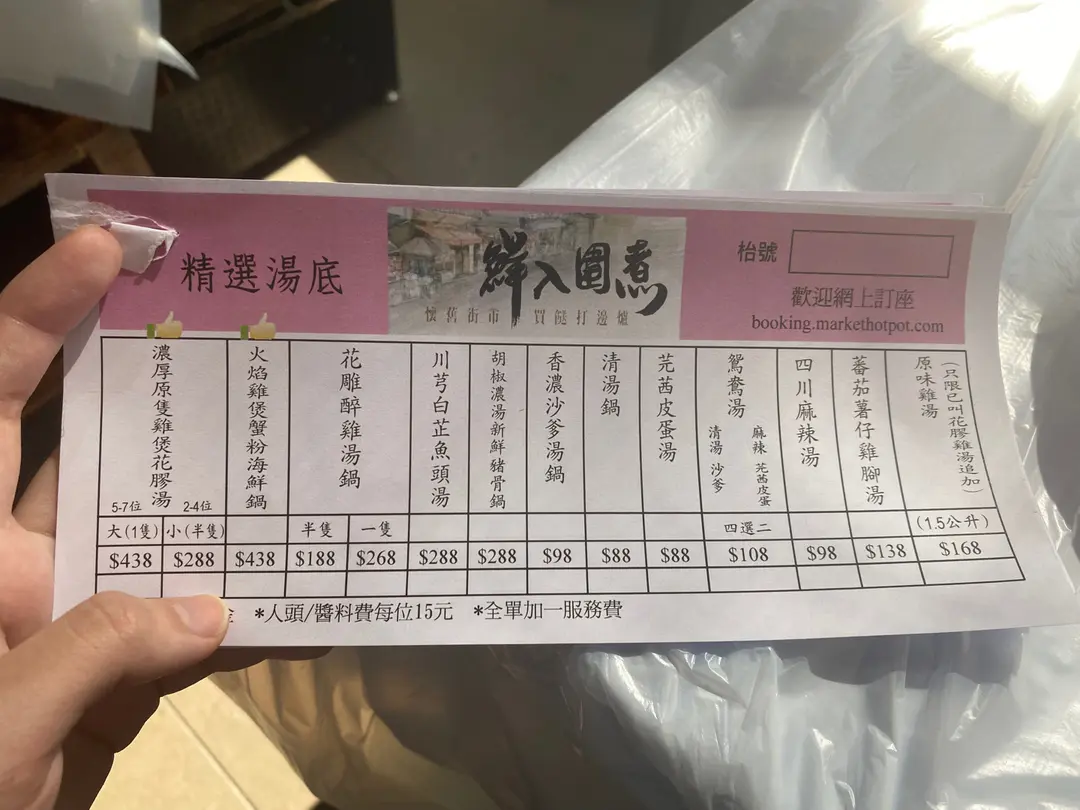 精選湯底
鮮入圍煮
懷舊街市 買餸打邊爐
枱號
歡迎網上訂座
booking.markethotpot.com
濃厚原隻雞煲花膠湯
5-7位
2-4位
火焰雞煲蟹粉海鮮鍋
花雕醉雞湯鍋
川芎白芷魚頭湯
胡椒濃湯新鮮豬骨鍋
香濃沙爹湯鍋
清湯鍋
芫茜皮蛋湯
鴛鴦湯
清湯 沙爹
麻辣 芫茜皮蛋
四川麻辣湯
蕃茄薯仔雞腳湯
原味雞湯
(只限已叫花膠雞湯追加)
大(1隻) 小(半隻) 半隻 一隻 四選二 (1.5公升)
$438 $288 $438 $188 $268 $288 $288 $98 $88 $88 $108 $98 $138 $168
*人頭/醬料費每位15元 *全單加一服務費